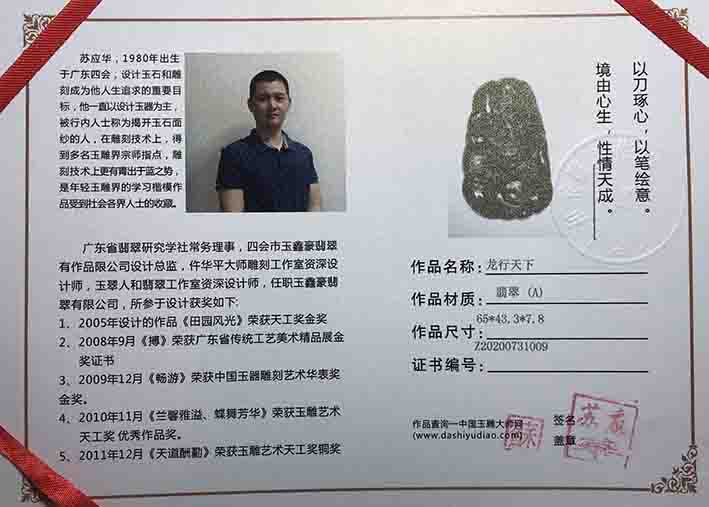 苏应华，1980年出生
于广东四会，设计玉石和雕
刻成为他人生追求的重要目
标，他一直以设计玉器为主，
被行内人士称为揭开玉石面
纱的人，在雕刻技术上，得
到多名玉雕界宗师指点，雕
刻技术上更有青出于蓝之势，
是年轻玉雕界的学习楷模作
品受到社会各界人士的收藏。
广东省翡翠研究学社常务理事，四会市玉鑫豪翡翠
有作品限公司设计总监，仵华平大师雕刻工作室资深设
计师，玉翠人和翡翠工作室资深设计师，任职玉鑫豪翡
翠有限公司，所参于设计获奖如下:
1、2005年设计的作品《田园风光》荣获天工奖金奖
2、2008年9月《搏》荣获广东省传统工艺美术精品展金
奖证书
3、2009年12月《畅游》荣获中国玉器雕刻艺术华表奖
金奖。
4、2010年11月《兰馨雅溢、蝶舞芳华》荣获玉雕艺术
天工奖 优秀作品奖。
5、2011年12月《天道酬勤》荣获玉雕艺术天工奖铜奖
以刀琢心，以笔绘意。
境由心生，性情天成。
作品名称: 龙行天下
作品材质: 翡翠 (A)
作品尺寸: 65*43.3*7.8
证书编号: Z20200731009
作品查询一中国玉雕大师网
(www.dashiyudiao.com)
签名
盖章
苏